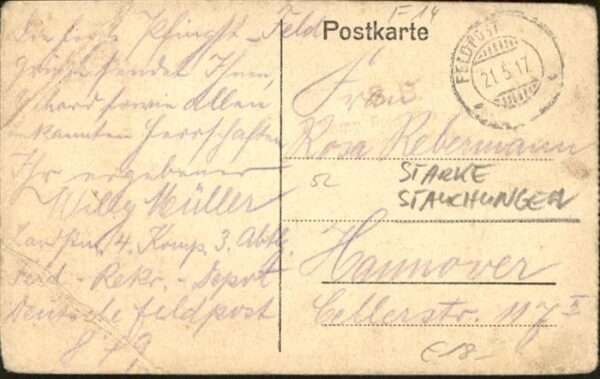 Die besten Pfingst-Feld
Grüße sendet Ihnen,
sowie allen
bekannten Herrschaften
Ihr ergebener
Willy Müller
Landstm. 4. Komp. 3. Abtlg.
Feld-Rekr.-Depot
Deutsche Feldpost
879
Postkarte
F 14
FELDPOST
21.5.17.
Frau
Rosa Rebermann
52
STARKE
STAUCHUNGEN
Hannover
Cellerstr. 117 II
€18-